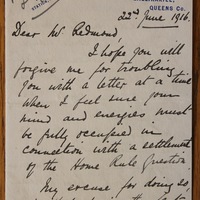 QUEENS Co.
22nd June 1916.
Dear Mr Redmond,
I hope you will
forgive me for troubling
you with a letter at a time
when I feel sure your
mind and energies must
be fully occupied in
connection with a settlement
of the Home Rule Question.
My excuse for doing so,